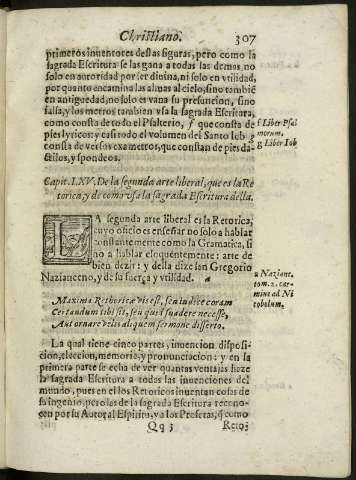 Christiano. 307
primeros inuentores destas figuras, pero como la
sagrada Escritura se las gana a todas las demas, no
solo en autoridad por ser diuina, ni solo en vtilidad,
por quanto encamina las almas al cielo, sino tambiẽ
en antiguedad, no solo es vana su presuncion, sino
falsa, y los metros tambien vsa la sagrada Escritura,
como consta de todo el Psalterio, f que consta de
pies lyricos: y casi todo el volumen del Santo Iob g
consta de versos exametros, que constan de pies da-
ctilos, y spondeos.
f Liber Psal
morum.
g Liber Iob
Capit. LXV. De la segunda arte liberal, que es la Re
torica, y de como vsa la sagrada Escritura della.
LA segunda arte liberal es la Retorica,
cuyo oficio es enseñar no solo a hablar
constantemente como la Gramatica, si
no a hablar eloquentemente: arte de
bien dezir: y della dize san Gregorio
Nazianceno, y de su fuerça y vtilidad. a
a Nazianc.
tom. 2. car-
mine ad Ni
cobulum.
Maxima Rethoricæ vis est, seu iudice coram
Certandum tibi sit, seu quid suadere necesse,
Aut ornare velis aliquem sermone diserto.
La qual tiene cinco partes, inuencion, disposi-
cion, eleccion, memoria, y pronunciacion: y en la
primera parte se echa de ver quantas ventajas haze
la sagrada Escritura a todas las inuenciones del
mundo, pues en ellos Retoricos inuentan cosas de
su ingenio, pero las de la sagrada Escritura recono-
cen por su Autor al Espiritu, y a los Profetas, q̃ como
Qq 3 Reto-